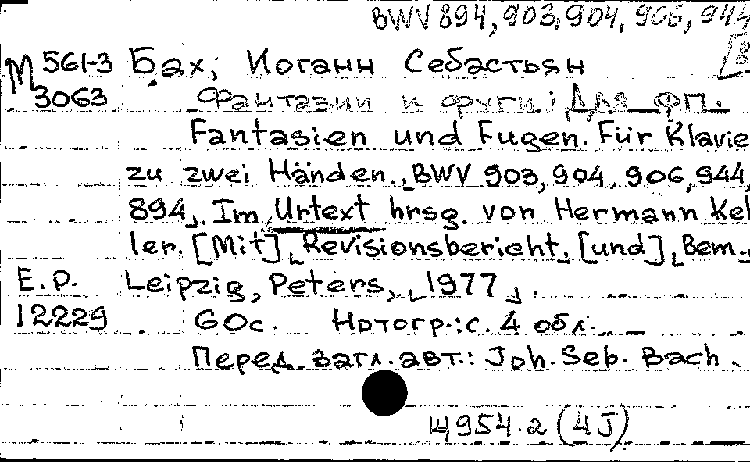 BWV 894, 903, 904, 906, 944
М 561-3 Бах, Иоганн Себастьян
3063 Фантазии и фуги: Для фп.
Fantasien und Fugen. Für Klavie
zu zwei Händen. BWV 903, 904, 906, 944,
894. Im Urtext hrsg. von Hermann Kel
ler. [Mit] Revisionsbericht, [und] Bem.
E.P. Leipzig, Peters, 1977.
12229 60с. Нотогр.: с. 4 обл.
Перед загл. авт.: Joh. Seb. Bach.
Щ954.2 (4J)